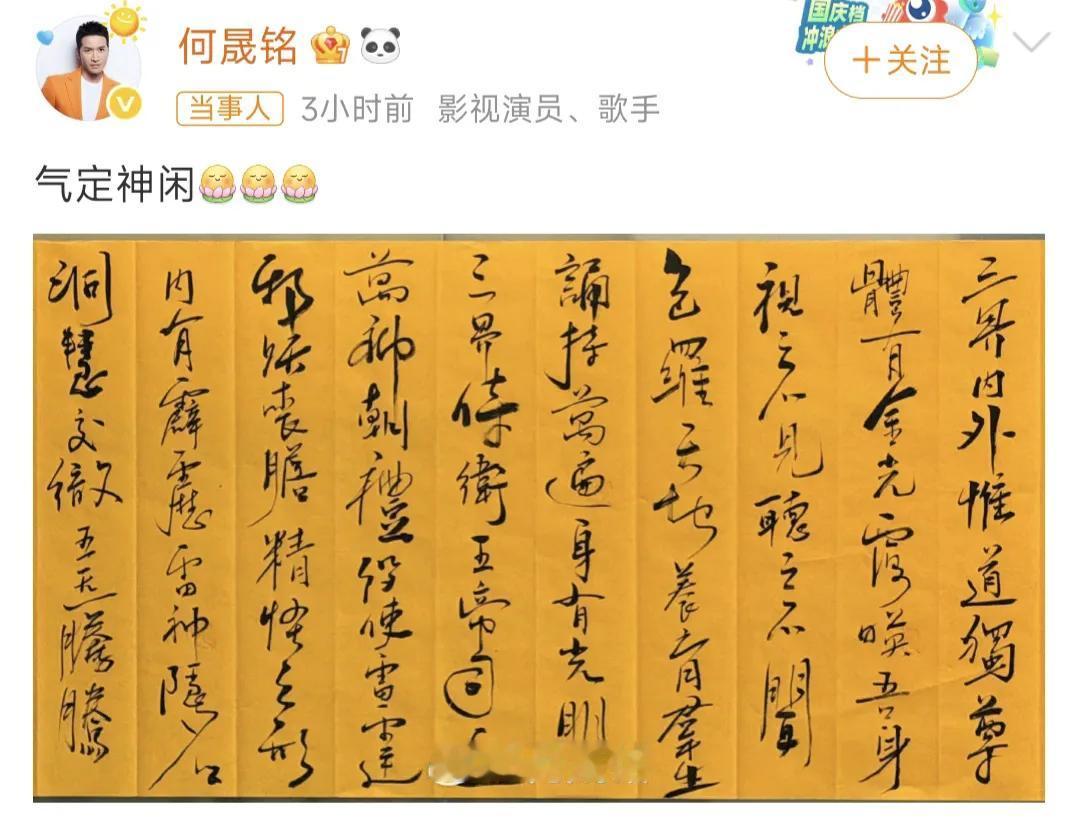 何晟铭
国庆档
冲浪
+关注
当事人 3小时前 影视演员、歌手
气定神闲
三界内外惟道獨尊
體有金光覆暎吾身
視之不見聽之不聞
包羅天地養育羣生
誦持萬遍身有光明
三界侍衛五帝司
萬神朝禮役使雷霆
邪妖喪膽精怪亡形
内有霹靂雷神隱名
洞慧交徹五炁騰騰